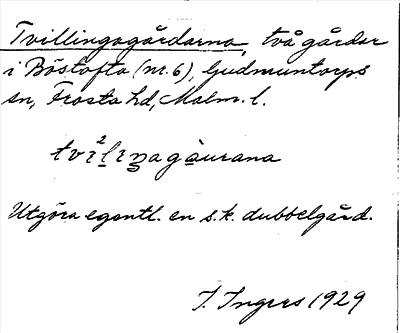 Tvillingagårdarna, två gårdar
i Böstofta (nr. 6), Gudmuntorps
sn, Frosta hd, Malm. l.
tvi²liŋagàurana
Utgöra egentl. en s.k. dubbelgård.
I. Ingers 1929